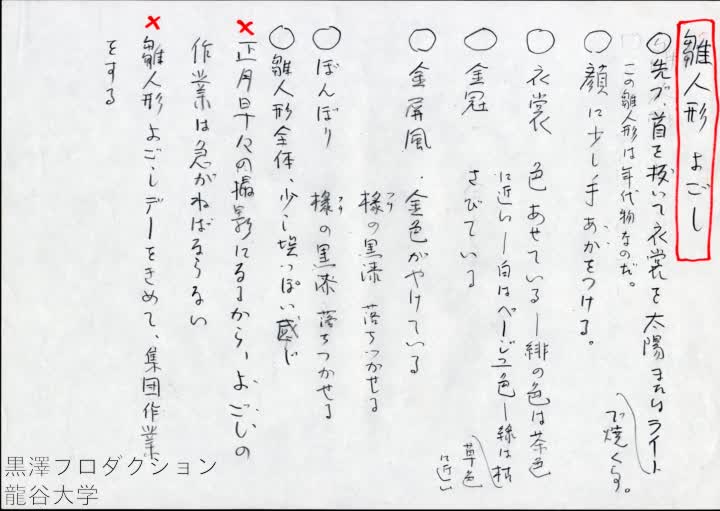 雛人形 よごし
○先づ、首を抜いて衣裳を太陽またはライト
で焼くす。
この雛人形は年代物なのだ。
○顔に少し手あかをつける。
○衣裳 色あせている―緋の色は茶色
に近い―白はベージュ色―緑は枯
草色
に近い
○金冠 さびている
○金屏風・金色がやけている
様の黒漆 落ちつかせる
○ぼんぼり 様の黒漆 落ちつかせる
○雛人形全体、少し埃っぽい感じ
×正月早々の撮影になるから、よごしの
作業は急がねばならない
×雛人形よごしデーをきめて、集団作業
をする
黒澤プロダクション
龍谷大学